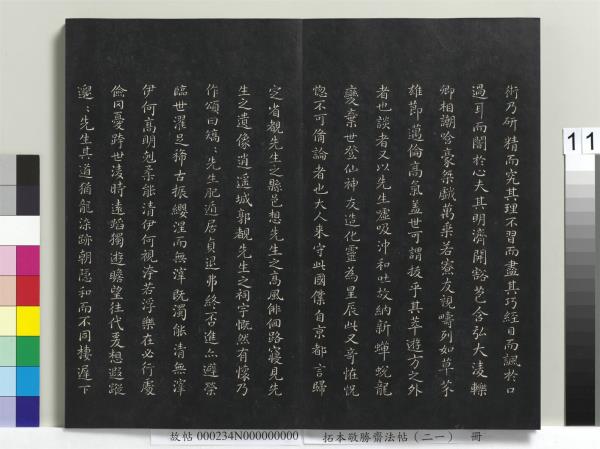 術乃研精而究其理不習而盡其巧經目而諷於口
過耳而闇於心夫其明濟開豁苞含弘大淩轢
卿相謿哈豪桀戲萬乘若寮友視疇列如草芥
雄節邁倫高氣蓋世可謂拔乎其萃遊方之外
者也談者又以先生噓吸沖和吐故納新蟬蛻龍
變棄世登仙神友造化靈為星辰此又奇怪怳
惚不可備論者也大人來守此國僕自京都言歸
定省覩先生之縣邑想先生之高風俳佪路寢見先
生之遺像逍遥城郭覩先生之祠宇慨然有懷乃
作頌曰矯〻先生肥遁居貞退弗終否進亦避榮
臨世濯足稀古振纓涅而無滓既濁能清無滓
伊何高明剋柔能清伊何視洿若浮樂在必行處
儉罔憂跨世淩時遠蹈獨遊瞻望往代爰想遐蹤
邈〻先生其道猶龍染跡朝隱和而不同棲遲下
11
故帖 000234N000000000
拓本敬勝齋法帖（二一） 冊